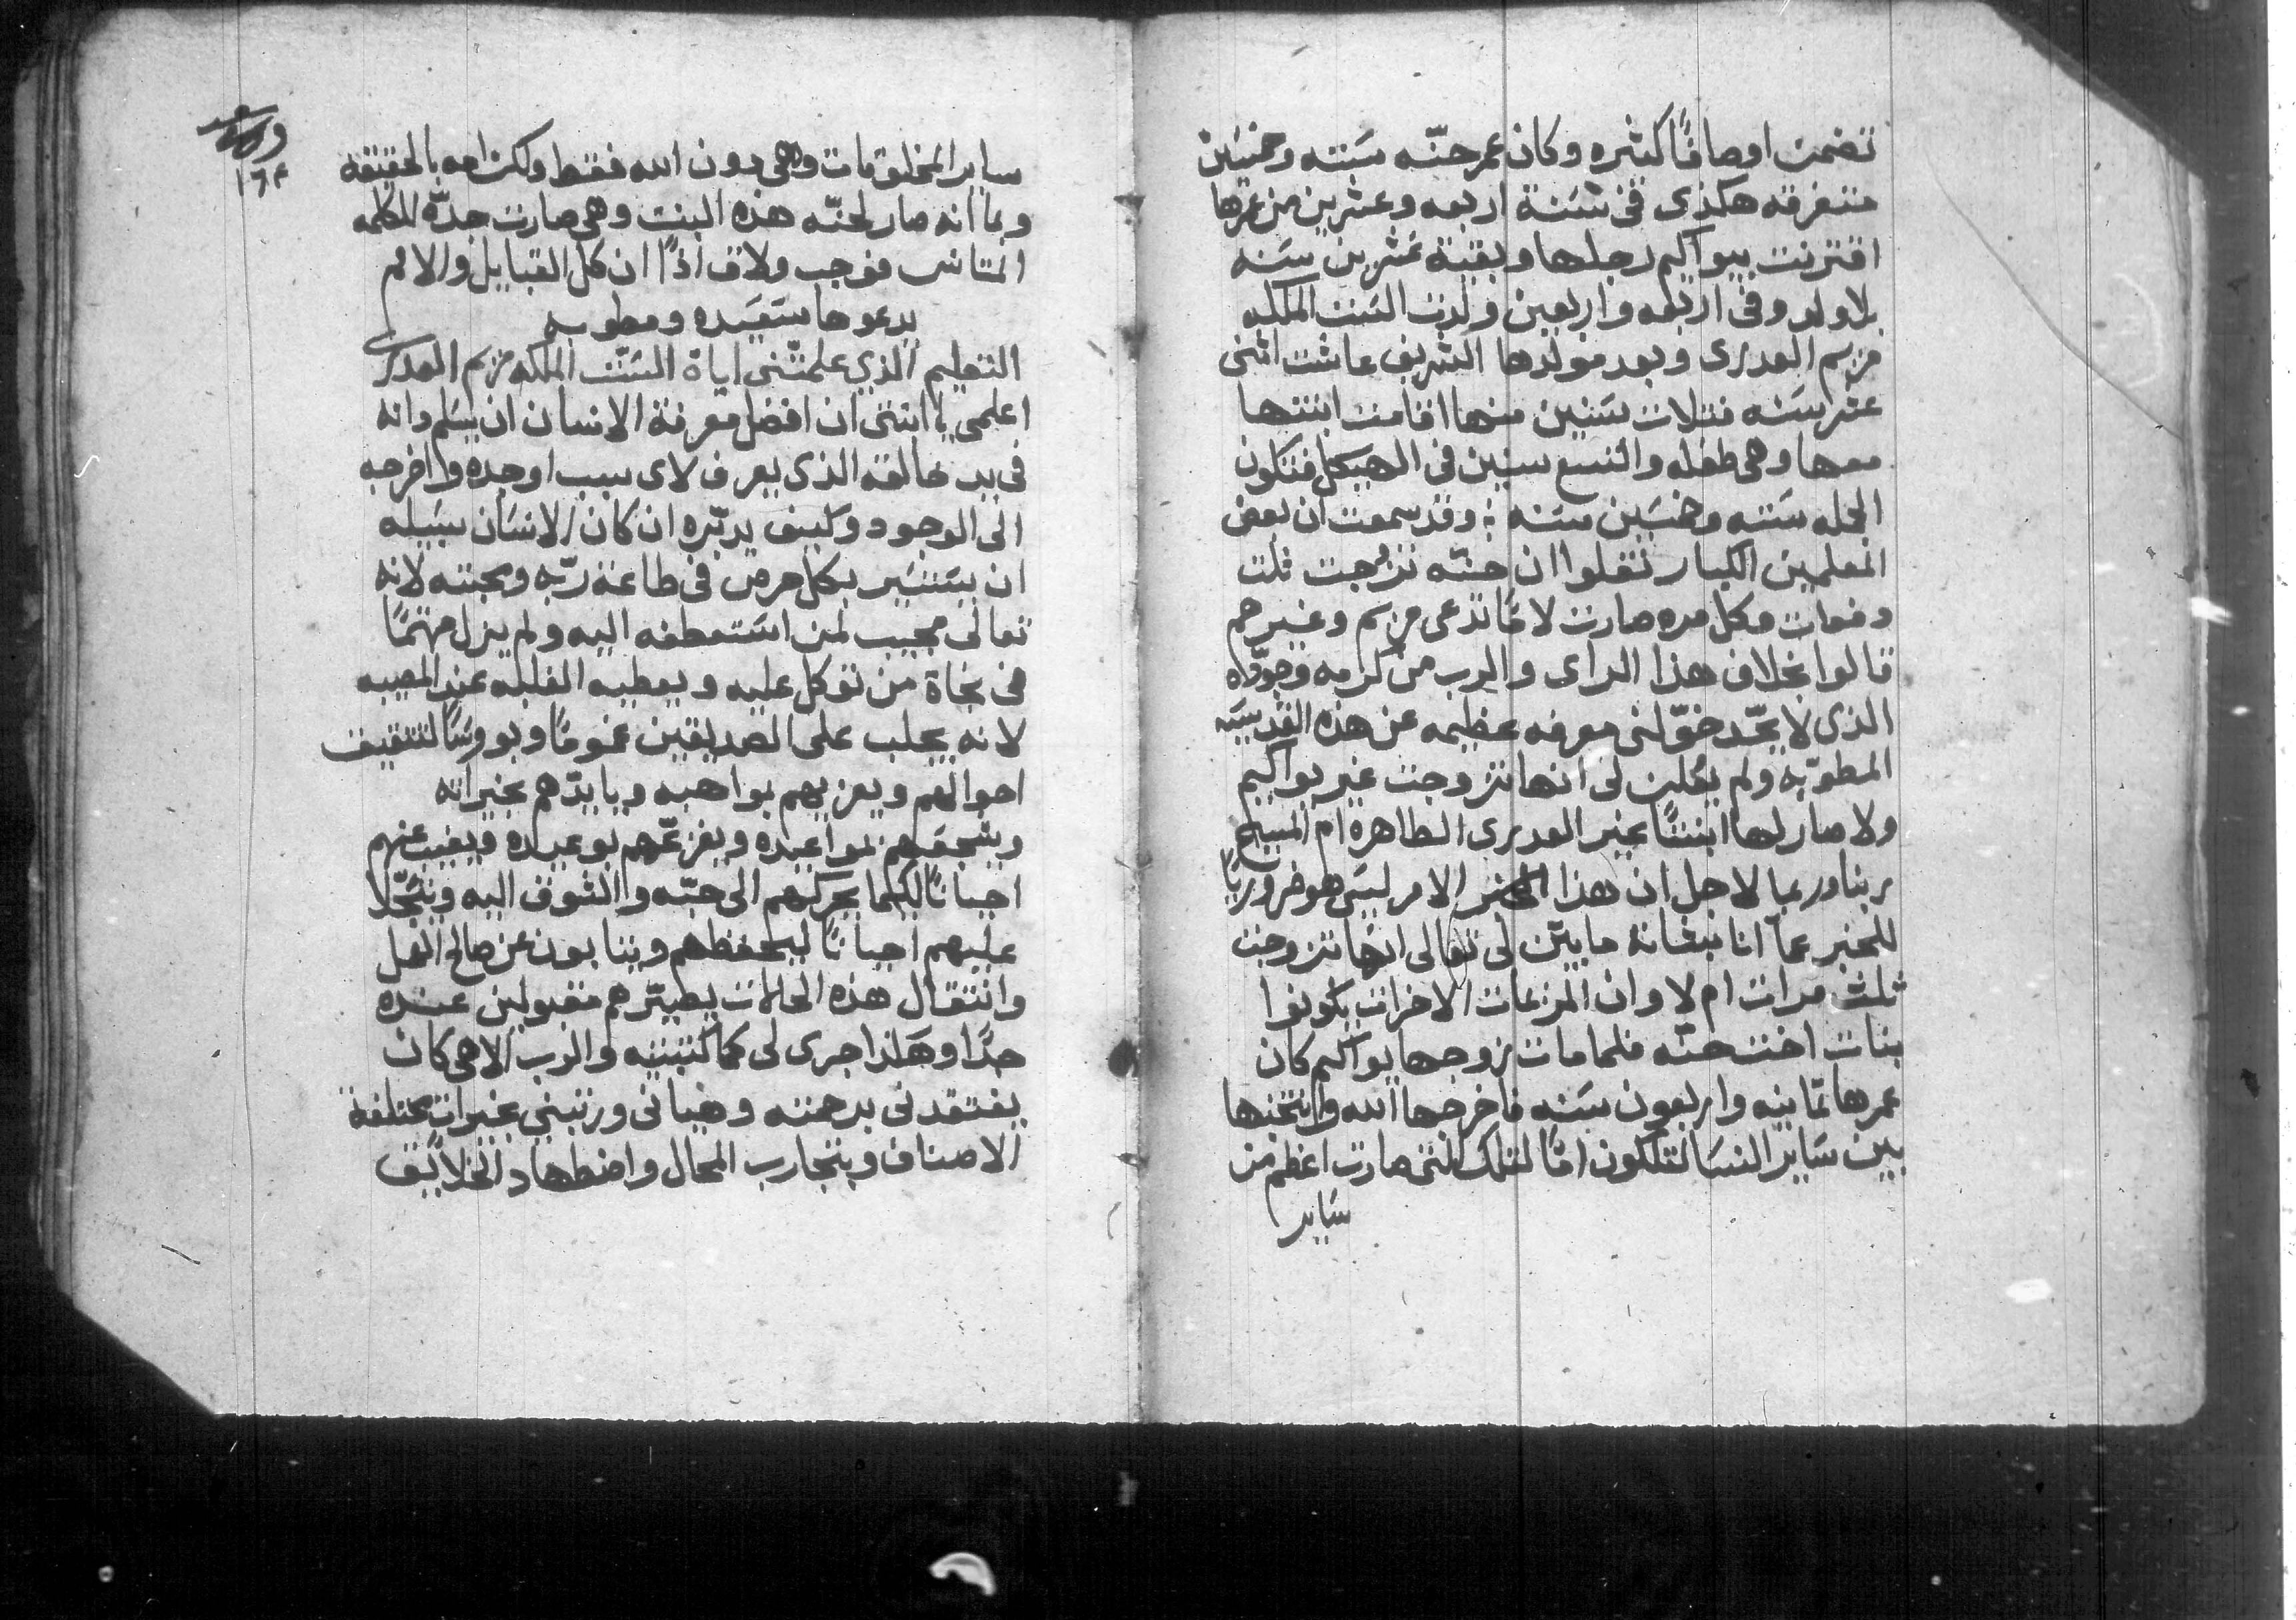 تضمنت اوصافًا كثيره وكان عمر حنّه ستته وخمسين
متفرقه هكذى ففى سَنة اربعه وعشرين من عمرها
اقترنت بيواكيم رجلها وبقية عشرين سَنه
بلا ولد وفى اربعه واربعين ولدت السَت الملكه
مريم العدرى وبعد مولدها الشريف عاشت اثنى
عشر سَنه فثلات سَنين منها اقامت ابنتها
معها وهى طفله والتسع سنين فى الهيكل فتكون
الجمله ستته وخمسَين سَنه ؛ وقد سمعت ان بعض
المعلمين الكبار نقلوا ان حنّه تزوجت ثلث
دفعات وكل مره صارت لامًا تدعى مريم وغيرهم
قالوا بخلاف هذا الراى والرب من كرمه وجوّده
الذى لا يحّد خوّلنى معرفه عظيمه عن هذه القديسَه
المطوبّه ولم يعلن لى انها تزوجت غير يواكيم
ولا صار لها ابنتًا غير العدرى الطاهره ام المسيح
ربنا وربما لاجل ان هذا الامر ليسَ هو ضروريًا
للخبر عما انا بشانه ما بيّن لى تعالى انها تزوجت
ثلث مرات ام لا وان المريمات الاخرات يكونوا
بنات اخت حنّه فلما مات زوجها يواكيم كان
عمرها تمانيه واربعون سَنه فاخرجها الله وانتخبها
بين سَاير النسَا لتكون امًا لتلك التى صارت اعظم من
سَاير
١٦٢
ساير المخلوقات وهى دون الله فقط ولكن امه بالحقيقه
وبما انه صار لحنّه هذه البنت وهى صارت جدّة الكلمه
المتانس فوجب ولاق اذًا ان كل القبايل والامم
يدعوها سَعيَده ومطوبه
التعليم الذي علمتّنى اياهُ السَت الملكه مريم العدرى
اعلمي يا ابنتى ان افضل معرفة الانسان ان يسَلم ذاته
فى يد خالقه الذى يعرف لاى سبب اوجده واخرجه
الى الوجود وكيف يدبّره ان كان الانسَان سبَيله
ان يسَتسَير بكل حرص فى طاعة ربّه ومحبته لانه
تعالى مجيب لمن استعطفه اليه ولم يزل مهتمًا
فى نجاة من توكل عليه ويعطيه الغلبه عند المصيبه
لانه يجلب على الصديقين غمومًا وبووسًا لتثقيف
احوالهم ويعزيهم بمواهبه ويايدّهم بخيراته
ويشجعهم بمواعيده ويفزعّهم بوعيده ويغيب عنهم
احيانًا لكيما يحركهم الى حبّه والشوق اليه ويتجّلا
عليهم احيانًا ليحفظهم ويثابون عن صالح العمل
وانتقال هذه الحالات يصيّرهم مقبولين عنده
جدًا وهكذا جرى لى كما كتبته والرب الاهى كان
يفتقدنى برحمته وهيانى ورتبنى بخيرات مختلفة
الاصناف وبتجارب المحال واضطهاد الخلايق